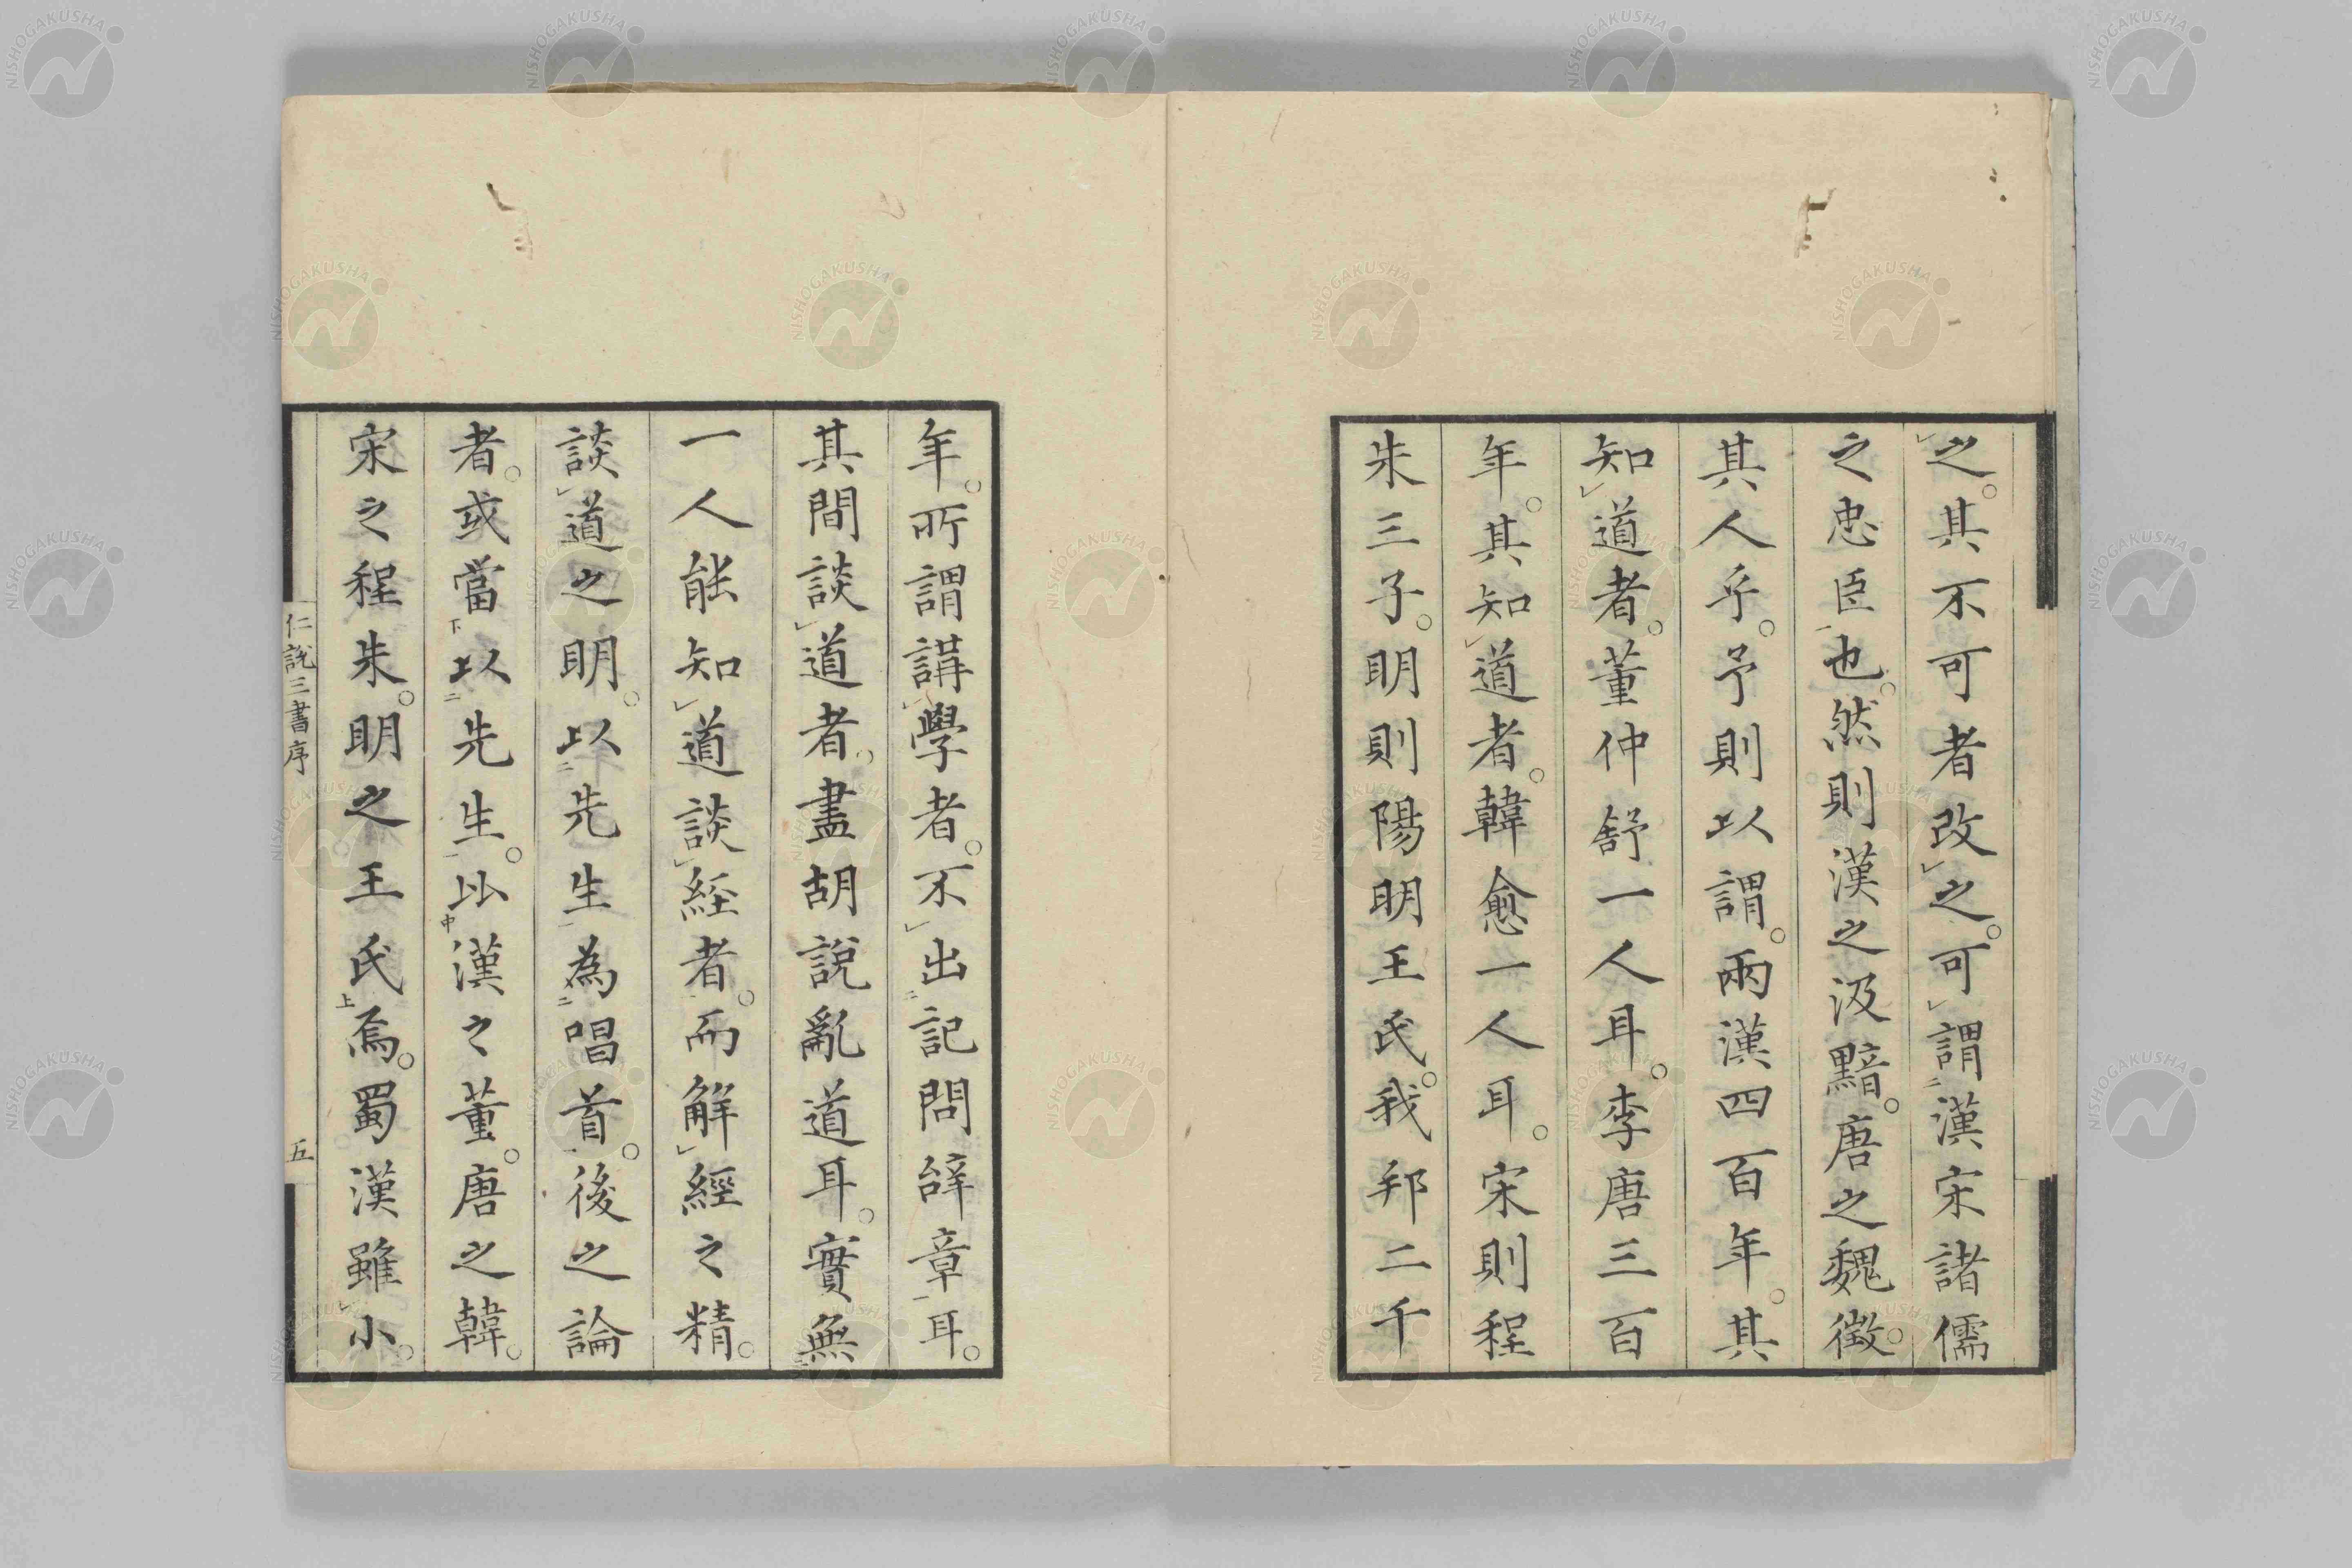 之。其不可者改之。可謂漢宋諸儒
之忠臣也。然則漢之汲黯。唐之魏徵。
其人乎。予則以謂。兩漢四百年。其
知道者。董仲舒一人耳。李唐三百
年。其知道者。韓愈一人耳。宋則程
朱三子。明則陽明王氏。我邦二千
年。所謂講學者。不出記問辭章耳。
其間談道者。盡胡說亂道耳。實無
一人能知道談經者。而解經之精。
談道之明。以先生為唱首。後之論
者。或當以先生。比漢之董。唐之韓。
宋之程朱。明之王氏焉。蜀漢雖小。
仁說三書序
五